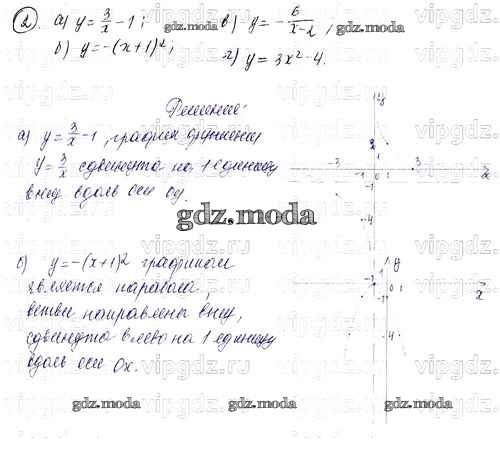 2. а) y = 3/x - 1; в) y = - 6/(x-2),
б) y = -(x+1)², г) y = 3x² - 4.
Решение:
а) y = 3/x - 1, график функции
y = 3/x сдвинута на 1 единицу
вниз вдоль оси оу.
б) y = -(x+1)² графиком
является парабола,
ветви направлены вниз,
сдвинута влево на 1 единицу
вдоль оси Ох.
gdz.moda
gdz.moda
gdz.moda
gdz.moda
gdz.moda
gdz.moda
vipgdz